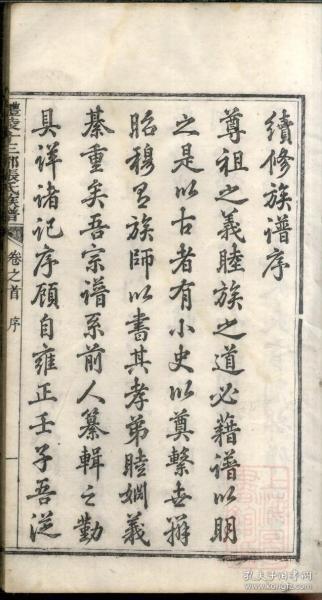 續修族譜序
尊祖之義睦族之道必藉譜以明
之是以古者有小史以奠繫世辨
昭穆有族師以書其孝弟睦婣義
綦重矣吾宗譜系前人纂輯之勤
具詳諸記序顧自雍正壬子吾從
醴陵十三都張氏族譜
卷之首 序
一